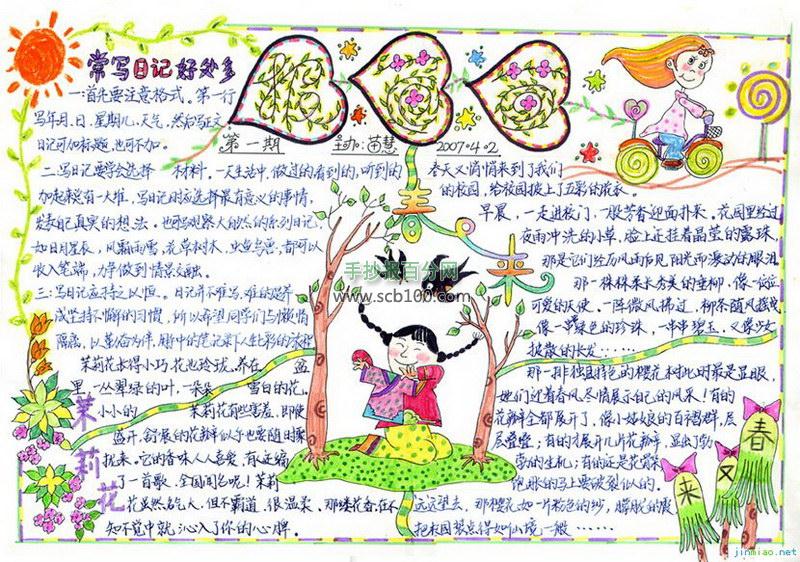 常写日记好处多
一:首先要注意格式。第一行
写年、月、日、星期几、天气,然后写正文
日记可加标题,也可不加。
二、写日记要学会选择 材料。一天生活中,做过的看到的,听到的
加起来总有一大堆,写日记时应选择最有意义的事情,
表达自己真实的想法。也可写观察大自然的系列日记,
如日月星辰,风霜雨雪,花草树木,虫鱼鸟兽,都可以
收入笔端,力争做到情景交融。
三:写日记应持之以恒。日记并不难写,难的是养
成坚持不懈的习惯,所以希望同学们与懒惰
隔离,以勤奋为伴,用手中的笔记录下人生
第一期 主办:苗慧 2007.4.2
茉莉花
茉莉花长得小巧,花也玲珑,养在 盆
里,一丛翠绿的叶,一朵朵 雪白的花。
小小的 茉莉花有些害羞,即使
盛开,舒展的花瓣似乎也要随时聚
拢来。它的香味人人喜爱,有 还编
了一首歌,全国闻名呢!茉莉
花虽然 人,但不霸道,很温柔。那缕花香,在不
知不觉中就沁入了你的心脾。
春来
春天又悄悄来到了我们
的校园,给校园披上了五彩的花衣。
早晨,一走进校门,一股芳香迎面扑来。花园里经过
夜雨冲洗的小草,脸上还挂着晶莹的露珠,
那是它们经历风雨后见阳光而激动的眼泪
那一株株秀长芳美的垂柳,像一位位
可爱的天使。一阵微风拂过,柳条随风摇曳
像一串绿色的珍珠,一串串碧玉,又像少女
披散的长发……
那一排独具特色的樱花树此时最是显眼,
她们迎着春风尽情展示自己的风采!有的
花瓣全都展开了,像小姑娘的百褶裙,层
层叠叠;有的才展开几片花瓣,显出了勃
勃的生机;有的还是花骨朵
饱胀的马上要破裂似的。
远远望去,那樱花如一片粉色的纱,朦胧的震
把校园装点得如仙境一般……
春又来
手抄报百分网
www.scb100.com
jinmiao.net